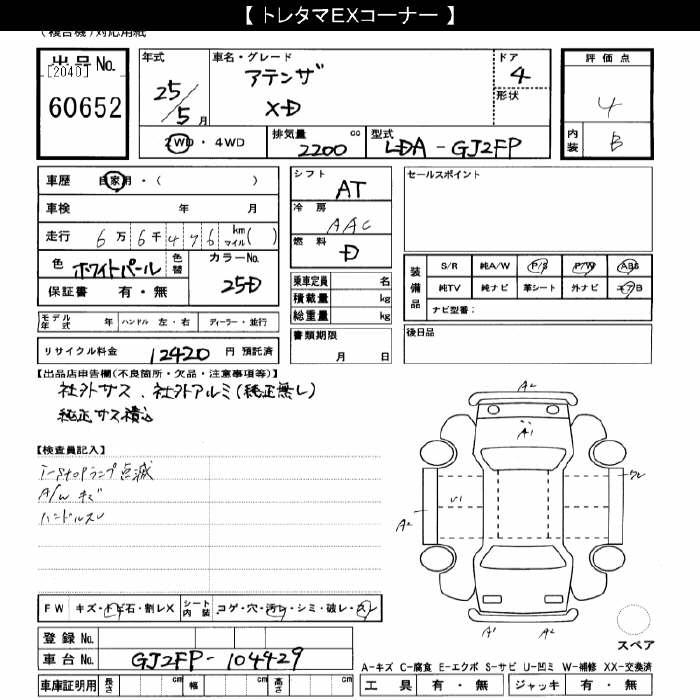 【 トレタマEXコーナー 】
(複合機)対応用紙
出品No.
[2040]
60652
年式
25/5月
車名・グレード
アテンザ
XD
ドア
4
形状
評価点
4
内装 B
2WD・4WD
排気量 cc
2200
型式
LDA-GJ2FP
車歴 自家用・( )
車検 年 月
走行 6万6千476 km マイル( )
色 ホワイトパール
色替
カラーNo.
25D
保証書 有・無
シフト
AT
冷房
AAC
燃料
D
セールスポイント
装備品
S/R 純A/W P/S P/W ABS
純TV 純ナビ 革シート 外ナビ エアB
ナビ型番:
乗車定員 名
積載量 kg
総重量 kg
モデル年式 年 ハンドル 左・右 ディーラー・並行
書類期限
月 日
後日品
リサイクル料金 12420 円 預託済
【出品店申告欄(不良箇所・欠品・注意事項等)】
社外サス、社外アルミ(純正無し)
純正サス積込
【検査員記入】
I-Stopランプ点滅
A/W キズ
ハンドルスレ
A2
A1
U1
A2
A1
A2
FW キズ・トビ石・割レX
シート内装 コゲ・穴・汚レ・シミ・破レ・スレ
登録No.
車台No. GJ2FP-104429
車庫証明用 長さ cm 幅 cm 高さ cm
スペア
A-キズ C-腐食 E-エクボ S-サビ U-凹ミ W-補修 XX-交換済
工具 有・無 ジャッキ 有・無